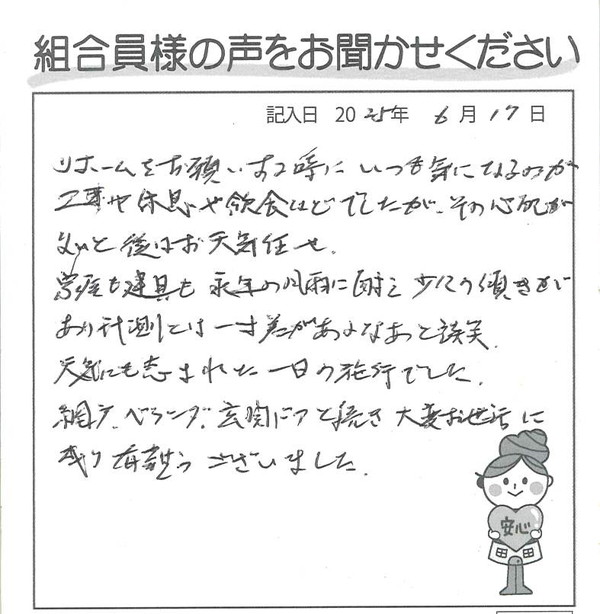 組合員様の声をお聞かせください
記入日 2025年 6月17日
リホームをお願いする時に いつも気になるのが
工事や休息や飲食などでしたが、その心配が
ないと 後はお天気任せ。
も建具も 永年の風雨に耐え 少しの傾きもが
あり計測とは一寸差があるなあと談笑。
天気にも恵まれた一日の施行でした。
網戸、ベランダ、玄関ドアと続き 大変お世話に
成り有難うございました。
安心